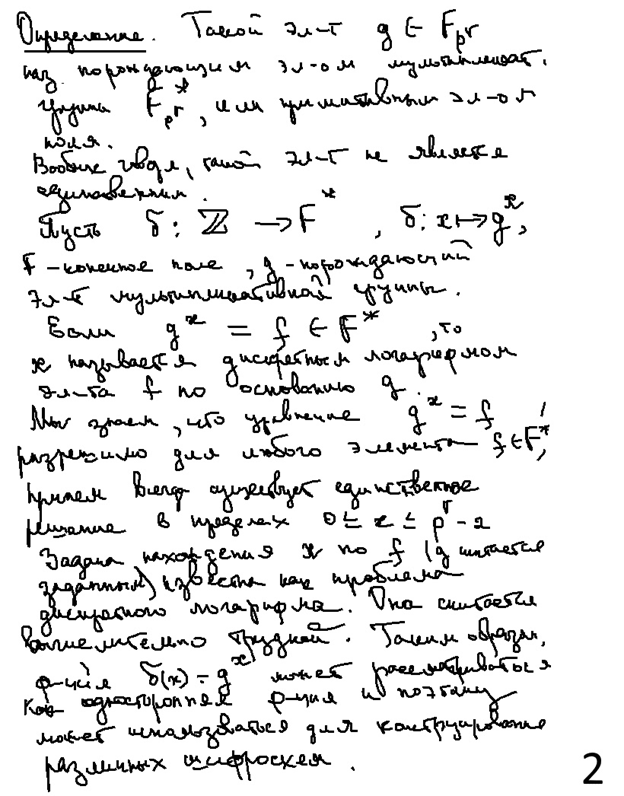 Определение. Такой эл-т g ∈ F_{p^r}
наз. порождающим эл-ом мультипликат.
группы F*_{p^r}, или примитивным эл-ом
поля.
Вообще говоря, такой эл-т не является
единственным.
Пусть δ: ℤ → F*, δ: x ↦ g^x,
F - конечное поле, g - порождающий
эл-т мультипликативной группы.
Если g^x = f ∈ F*, то
x называется дискретным логарифмом
эл-та f по основанию g.
Мы знаем, что уравнение g^x = f
разрешимо для любого элемента f ∈ F*,
причем всегда существует единственное
решение в пределах 0 ≤ x ≤ p^r - 2
Задача нахождения x по f (g считается
заданным) известна как проблема
дискретного логарифма. Она считается
вычислительно трудной. Таким образом,
ф-ция δ(x) = g^x может рассматриваться
как односторонняя ф-ция и поэтому
может использоваться для конструирования
различных шифросхем.
2